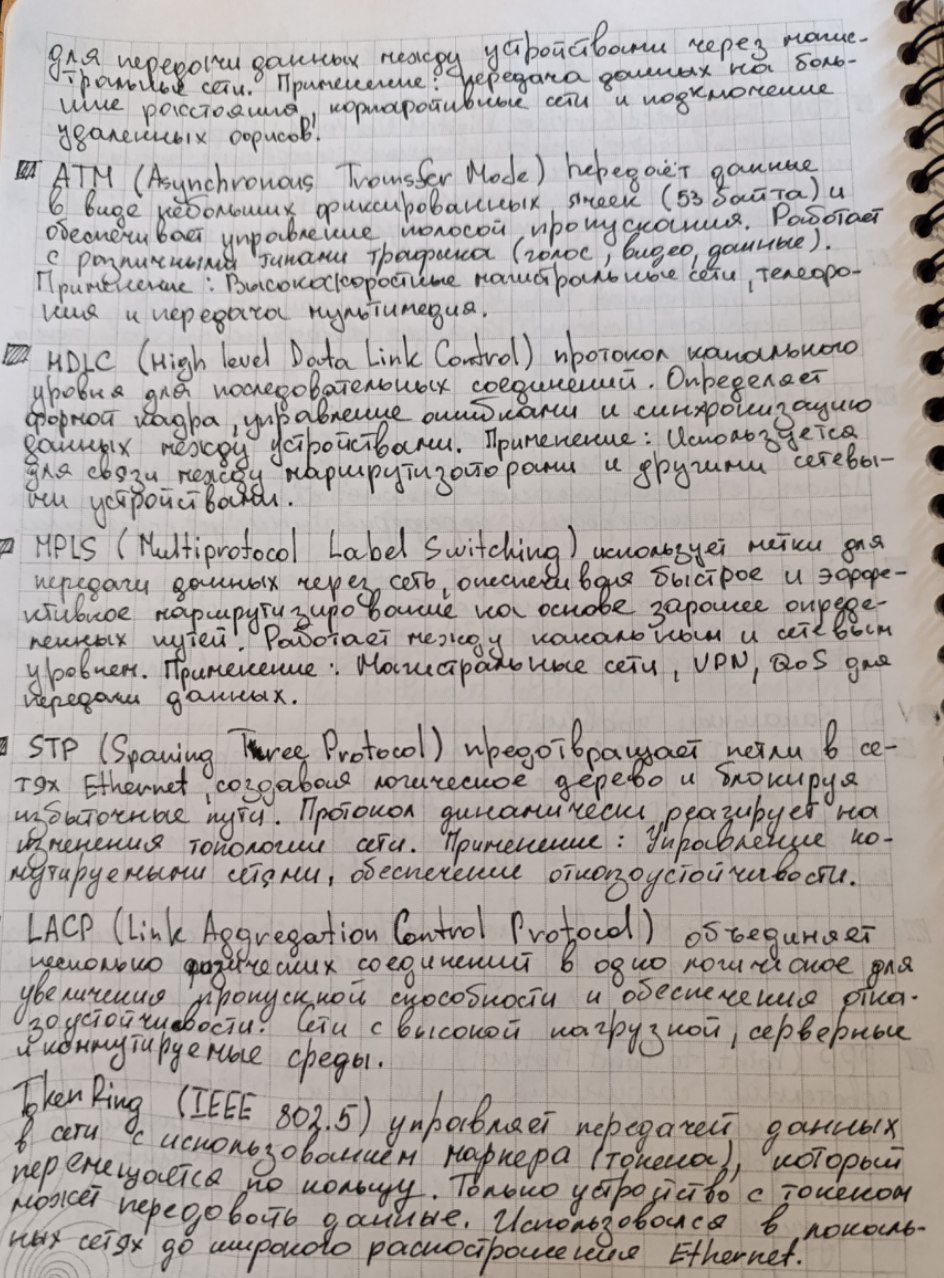 для передачи данных между устройствами через магис-
тральные сети. Применение: передача данных на боль-
шие расстояния, корпоротивные сети и подключение
удаленных офисов.
ATM (Asynchronous Transfer Mode) передаёт данные
в виде небольших фиксированных ячеек (53 байта) и
обеспечивает управление полосой пропускания. Работает
с различными типами трафика (голос, видео, данные).
Применение: Высокоскоростные магистральные сети, телефо-
ния и передача мультимедиа.
HDLC (High level Data Link Control) протокол канального
уровня для последовательных соединений. Определяет
формат кадра, управление ошибками и синхронизацию
данных между устройствами. Применение: Используется
для связи между маршрутизаторами и другими сетевы-
ми устройствами.
MPLS (Multiprotocol Label Switching) использует метки для
передачи данных через сеть, опеспечивая быстрое и эффе-
ктивное маршрутизирование на основе заранее опреде-
ленных путей. Работает между канальным и сетевым
уровнем. Применение: Магистральные сети, VPN, QoS для
передачи данных.
STP (Spaning Tree Protocol) предотвращает петли в се-
тях Ethernet, создавая логическое дерево и блокируя
избыточные пути. Протокол динамически реагирует на
изменения топологии сети. Применение: Управление ко-
мутируемыми сетями, обеспечение отказоустойчивости.
LACP (Link Aggregation Control Protocol) объединяет
несколько физических соединений в одно логическое для
увеличения пропускной способности и обеспечения отка-
зоустойчивости. Сети с высокой нагрузкой, серверные
и коммутируемые среды.
Token Ring (IEEE 802.5) управляет передачей данных
в сети с использованием маркера (токена), который
перемещается по кольцу. Только устройство с токеном
может передовать данные. Использовался в локаль-
ных сетях до широкого распостранения Ethernet.